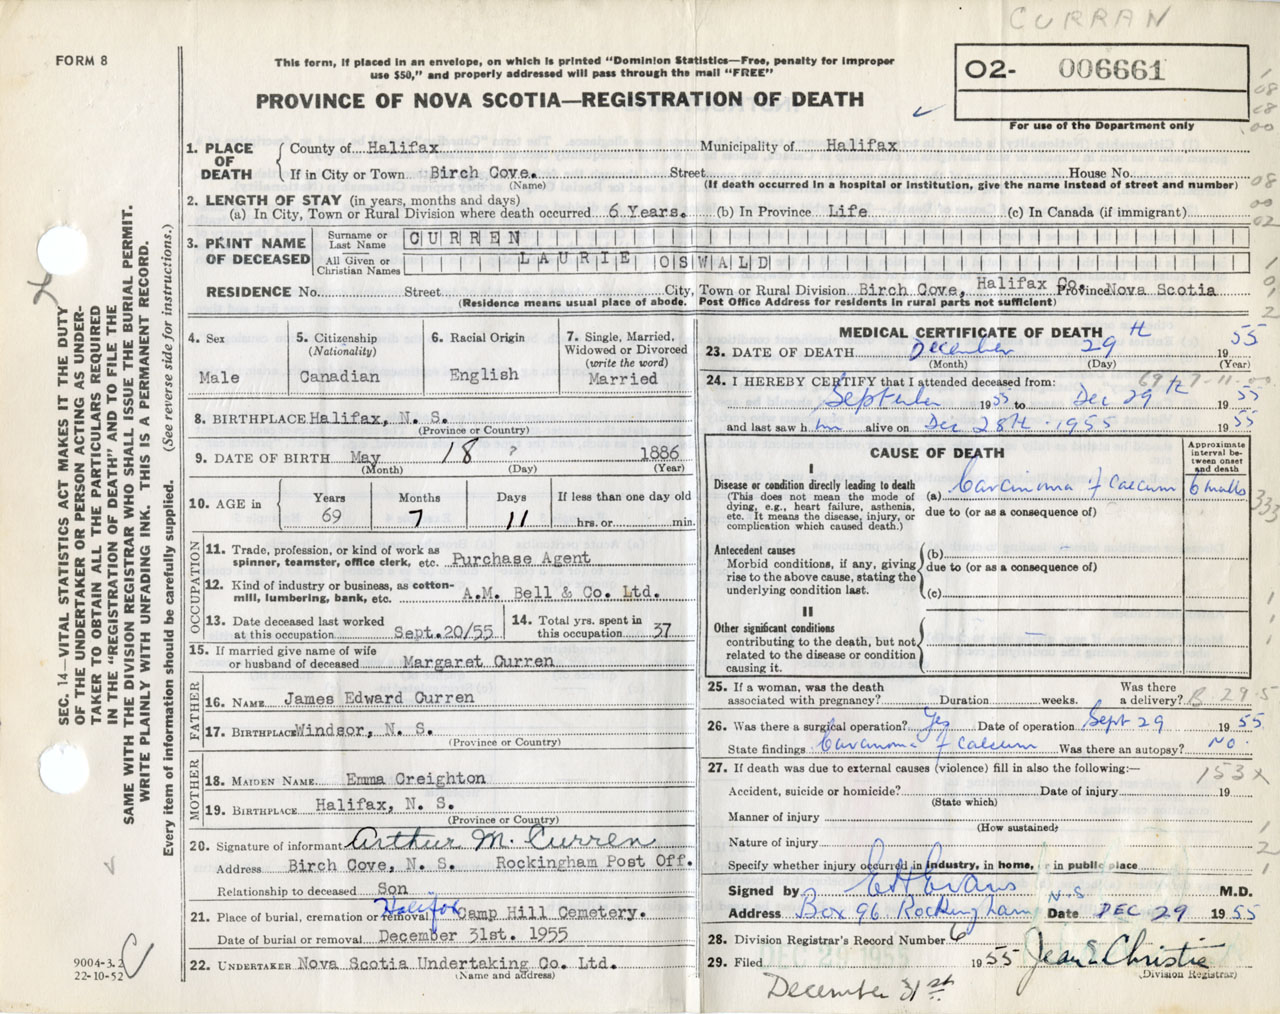 CURRAN
FORM 8
This form, if placed in an envelope, on which is printed "Dominion Statistics—Free, penalty for improper
use $50," and properly addressed will pass through the mail "FREE"
PROVINCE OF NOVA SCOTIA—REGISTRATION OF DEATH
O2- 006661
For use of the Department only
1. PLACE OF DEATH
County of Halifax Municipality of Halifax
If in City or Town Birch Cove. Street House No.
(Name) (If death occurred in a hospital or institution, give the name instead of street and number)
2. LENGTH OF STAY (in years, months and days)
(a) In City, Town or Rural Division where death occurred 6 Years. (b) In Province Life (c) In Canada (if immigrant)
3. PRINT NAME OF DECEASED
Surname or Last Name CURREN
All Given or Christian Names LAURIE OSWALD
RESIDENCE No. Street City, Town or Rural Division Birch Cove, Halifax Co. Province Nova Scotia
(Residence means usual place of abode. Post Office Address for residents in rural parts not sufficient)
4. Sex
Male
5. Citizenship
(Nationality)
Canadian
6. Racial Origin
English
7. Single, Married, Widowed or Divorced
(write the word)
Married
8. BIRTHPLACE Halifax, N. S.
(Province or Country)
9. DATE OF BIRTH May 18 ? 1886
(Month) (Day) (Year)
10. AGE in
Years Months Days If less than one day old
69 7 11 hrs. or min.
OCCUPATION
11. Trade, profession, or kind of work as
spinner, teamster, office clerk, etc. Purchase Agent
12. Kind of industry or business, as cotton-
mill, lumbering, bank, etc. A.M. Bell & Co. Ltd.
13. Date deceased last worked
at this occupation Sept.20/55
14. Total yrs. spent in
this occupation 37
15. If married give name of wife
or husband of deceased Margaret Curren
FATHER
16. NAME James Edward Curren
17. BIRTHPLACE Windsor, N. S.
(Province or Country)
MOTHER
18. MAIDEN NAME Emma Creighton
19. BIRTHPLACE Halifax, N. S.
(Province or Country)
20. Signature of informant Arthur M. Curren
Address Birch Cove, N. S. Rockingham Post Off.
Relationship to deceased Son
21. Place of burial, cremation or removal Halifax Camp Hill Cemetery.
Date of burial or removal December 31st. 1955
22. UNDERTAKER Nova Scotia Undertaking Co. Ltd.
(Name and address)
MEDICAL CERTIFICATE OF DEATH
23. DATE OF DEATH December 29th 1955
(Month) (Day) (Year)
69-7-11
24. I HEREBY CERTIFY that I attended deceased from:
September 1955 to Dec 29th 1955
and last saw him alive on Dec 28th 1955 1955
CAUSE OF DEATH
Approximate interval between onset and death
I
Disease or condition directly leading to death
(This does not mean the mode of
dying, e.g., heart failure, asthenia,
etc. It means the disease, injury, or
complication which caused death.)
(a) Carcinoma of Caecum 6 months
due to (or as a consequence of)
Antecedent causes
Morbid conditions, if any, giving
rise to the above cause, stating the
underlying condition last.
(b)
due to (or as a consequence of)
(c)
II
Other significant conditions
contributing to the death, but not
related to the disease or condition
causing it.
25. If a woman, was the death
associated with pregnancy? Duration weeks. Was there
a delivery?
26. Was there a surgical operation? Yes Date of operation Sept 29 1955
State findings Carcinoma of Caecum Was there an autopsy? No.
27. If death was due to external causes (violence) fill in also the following:—
153x
Accident, suicide or homicide? Date of injury 19
(State which)
Manner of injury
(How sustained)
Nature of injury
Specify whether injury occurred in industry, in home, or in public place
Signed by E H Evans M.D.
Address Box 96 Rockingham N.S Date DEC 29 1955
28. Division Registrar's Record Number 6
DEC 29 1955
29. Filed December 31st 1955 Jean E Christie
(Division Registrar)
SEC. 14—VITAL STATISTICS ACT MAKES IT THE DUTY
OF THE UNDERTAKER OR PERSON ACTING AS UNDER-
TAKER TO OBTAIN ALL THE PARTICULARS REQUIRED
IN THE "REGISTRATION OF DEATH" AND TO FILE THE
SAME WITH THE DIVISION REGISTRAR WHO SHALL ISSUE THE BURIAL PERMIT.
WRITE PLAINLY WITH UNFADING INK. THIS IS A PERMANENT RECORD.
Every item of information should be carefully supplied. (See reverse side for instructions.)
9004-3.2
22-10-52